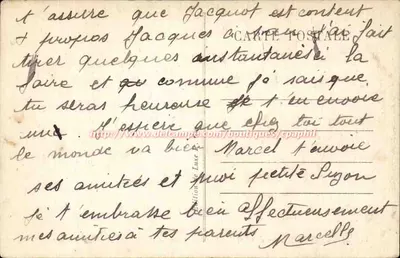 t'assure que Jacquot est content
à propos Jacques
CARTE POSTALE
fait
tirer quelques instantanés à la
foire et comme je sais que
tu seras heureuse je t'en envoie
une. J'espère que chez toi tout
le monde va bien Marcel t'envoie
ses amitiés et moi petite Suzon
je t'embrasse bien affectueusement
mes amitiés à tes parents
Marcelle